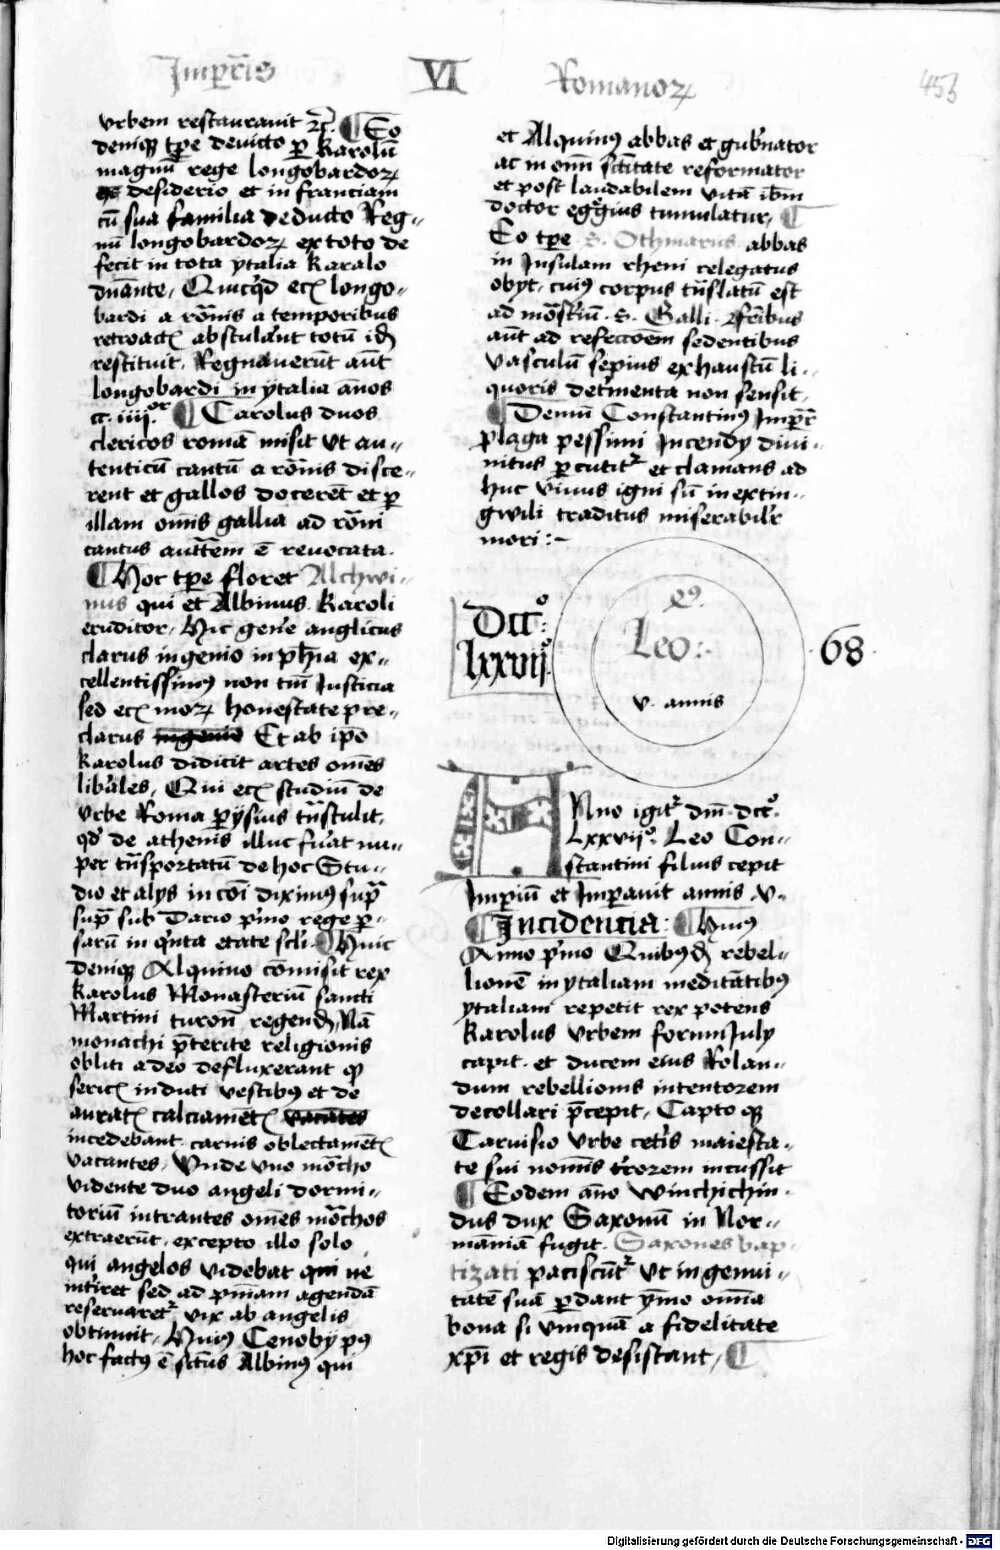 Imper̄is VI Romanoꝝ 453
vrbem restaurauit ⁊c̄. ¶ Eo
deniqꝫ tp̄e deuicto ꝑ karolū
magnū rege longobardoꝝ
desiderio et in franciam
cū sua familia deducto Reg-
nū longobardoꝝ ex toto de
fecit in tota ytalia karalo
dn̄ante, Quicq̄d eciā longo-
bardi a rōnis a temporibus
retroactꝭ abstulerant totū idē
restituit. Regnauerūt aūt
longobardi in ytalia annos
cc.iiij.or ¶ Carolus duos
clericos romā misit vt au-
tenticū cantū a rōnis disce-
rent et gallos docerēt et ꝑ
illam om̄is gallia ad rōni
cantus autētem ē reuocata.
¶ Hoc tp̄e floret Alchwi-
nus qui et Albinus. karoli
eruditor, Hic gen̄e anglicus
clarus ingenio in ph̄ia ex-
cellentissimꝰ non tm̄ Iusticia
sed eciā moꝝ honestate pre-
clarus ingenio Et ab ip̄o
karolus didicit artes om̄es
libāles, Qui eciā studiū de
vrbe Roma pͣysius tn̄stulit,
qd̄ de athenis illuc fuāt nu-
per tn̄sportatū de hoc Stu-
dio et alys in cōi diximꝰ supͣ
supͣ sub Dario pͥmo rege ꝑ-
sarū in qͥnta etate scl̄i. ¶ Huic
deniqꝫ Alquino cōmisit rex
karolus Monasteriū sancti
Martini turoū regendū Nā
monachi p̄terite religionis
obliti adeo defluxerant qꝫ
sericꝭ induti vestibꝰ et de
auratꝭ calciamētꝭ vacātes
incedebant carnis oblectamētꝭ
vacantes, Vnde vno mōcho
vidente duo angeli dormi-
toriū intrantes om̄es mōchos
extraerūt, excepto illo solo
qui angelos videbat qui ne
intiret sed ad pn̄iam agendā
reseruaretᷣ vix ab angelis
obtinuit, Huiꝰ Cenoby pͥꝰ
hoc factꝰ ē sct̄us Albinꝰ qui
et Alquinꝰ abbas et gub̄nator
ac in om̄i sctītate reformator
et post laudabilem vitā ibm̄
doctor egͣgius tumulatur, ¶
Eo tp̄e S. Othmarus abbas
in Insulam rheni relegatus
obyt, cuiꝰ corpus tn̄slatū est
ad mōstͥiū. S. Galli. ⁊ fr̄ibus
aūt ad refeccōem sedentibus
vasculū sepius exhaustū li-
quoris det̄menta non sensit.
¶ Demū Constantinꝰ Imper̄
plaga pessimi Incendy diui-
nitus ꝑcutitᷣ et clamans ad
huc viuus igni sū inextin-
gwili traditus miserabil̄r
mori :-
Dccͦ:
lxxvijͦ
9ꝰ.
Leo:.
v. annis
68
ANno igitᷣ dm̄. dccͦ.
Lxxvijͦ. Leo Con-
stantini filius cepit
Imꝑiū et Imꝑauit annis .v.
¶ Incidencia: ¶ Huiꝰ
Anno pͥmo Quibꝰdā rebel-
lionē in ytaliam meditātibꝰ
ytaliam repetit rex potens
karolus vrbem forum July
capit. et ducem eius Rolan-
dum rebellionis intentorem
decollari p̄cepit, Capto qꝫ
Taruisio vrbe cet̄is maiesta-
te sui nomīs t̄rorem incussit
¶ Eodem an̄o Winchichin-
dus dux Saxonū in Nor-
māniā fugit. Saxones bap-
tizati paciscūtᷣ vt ingenui-
tatē suā ꝑdant ymo om̄ia
bona si vmquā a fidelitate
xp̄i et regis desistant, ¶
Digitalisierung gefördert durch die Deutsche Forschungsgemeinschaft - DFG